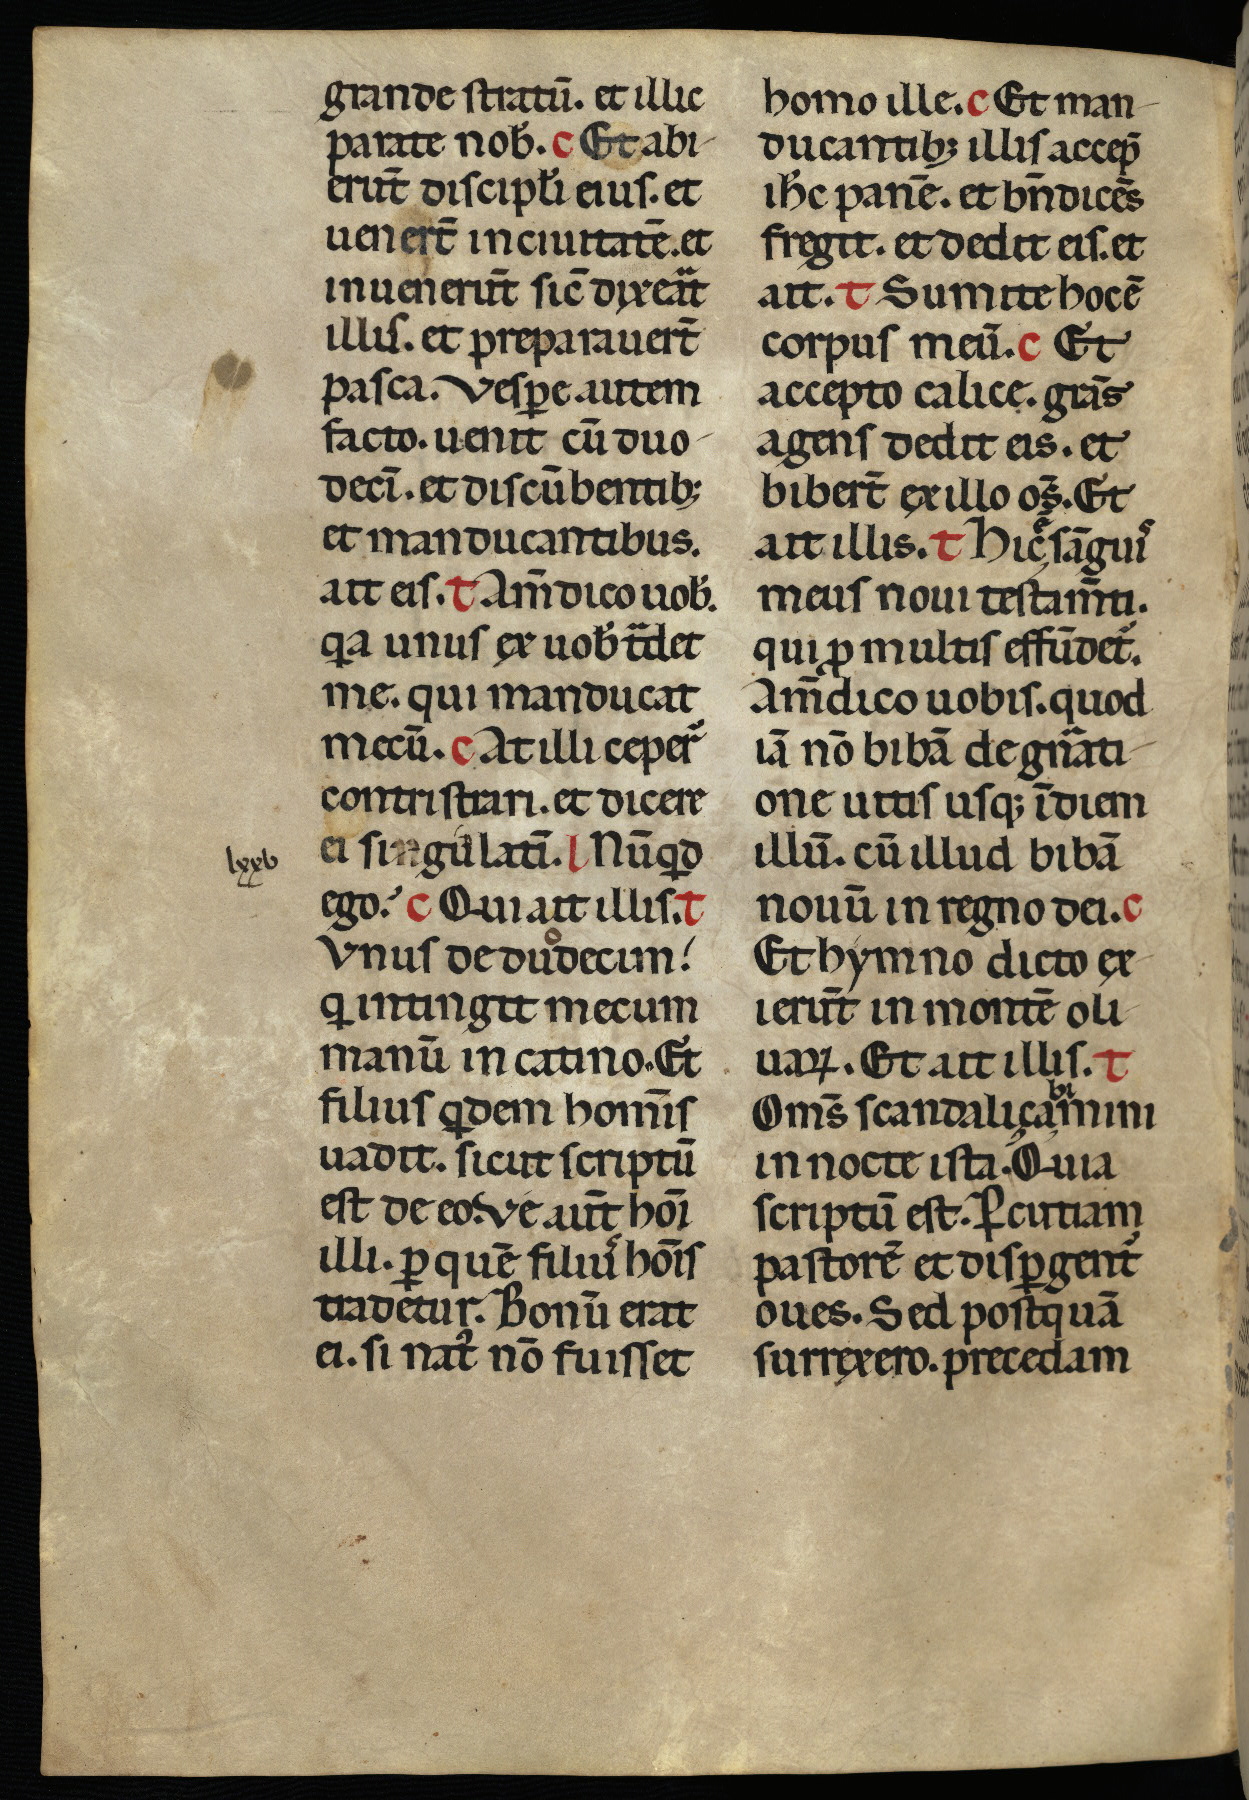 grande stratū. et illic
parate nob̄. c Et abi-
erūt discipl̄i eius. et
uenerūt in ciuitatē. et
inuenerūt sic̄ dixeāt
illis. et preparauert̄
pasca. Vesp̲e autem
facto. uenit cū duo-
decī. et discūbentib;
et manducantibus.
ait eis. t Am̄ dico uob̄.
qa unus ex uob̄ tᵃdet
me. qui manducat
mecū. c At illi ceper̄
contristari. et dicere
ei singulatī. l Nūqd
lxxb
ego? c Qui ait illis. t
Vnus de duodecim!
q intingit mecum
manū in catino. Et
filius qdem homīs
uadit. sicut scriptū
est de eo. Ve aut̄ hōi
illi. ꝑ quē filius hōis
tradetur. Bonū erat
ei. si nat᾽ nō fuisset
homo ille. c Et man-
ducantib; illis accep̄
ih̄c panē. et bn̄dicēs
fregit. et dedit eis. et
ait. t Sumite hoc ē
corpus meū. c Et
accepto calice. grās
agens dedit eis. et
bibert̄ ex illo oṁs. Et
ait illis. t Hic ē sāguis
meus noui testam̄ti.
qui p multis effūdet᾽.
Am̄ dico uobis. quod
iā nō bibā de gn̄ati-
one uitis usq; ī diem
illū. cū illud bibā
nouū in regno dei. c
Et hymno dicto ex-
ierūt in montē oli-
uaꝝ. Et ait illis. t
Oms̄ scandalizabimini
in nocte ista. Quia
scriptū est. Ꝑcutiam
pastorē et disꝑgent᾽
oues. Sed postquā
surrexero. precedam